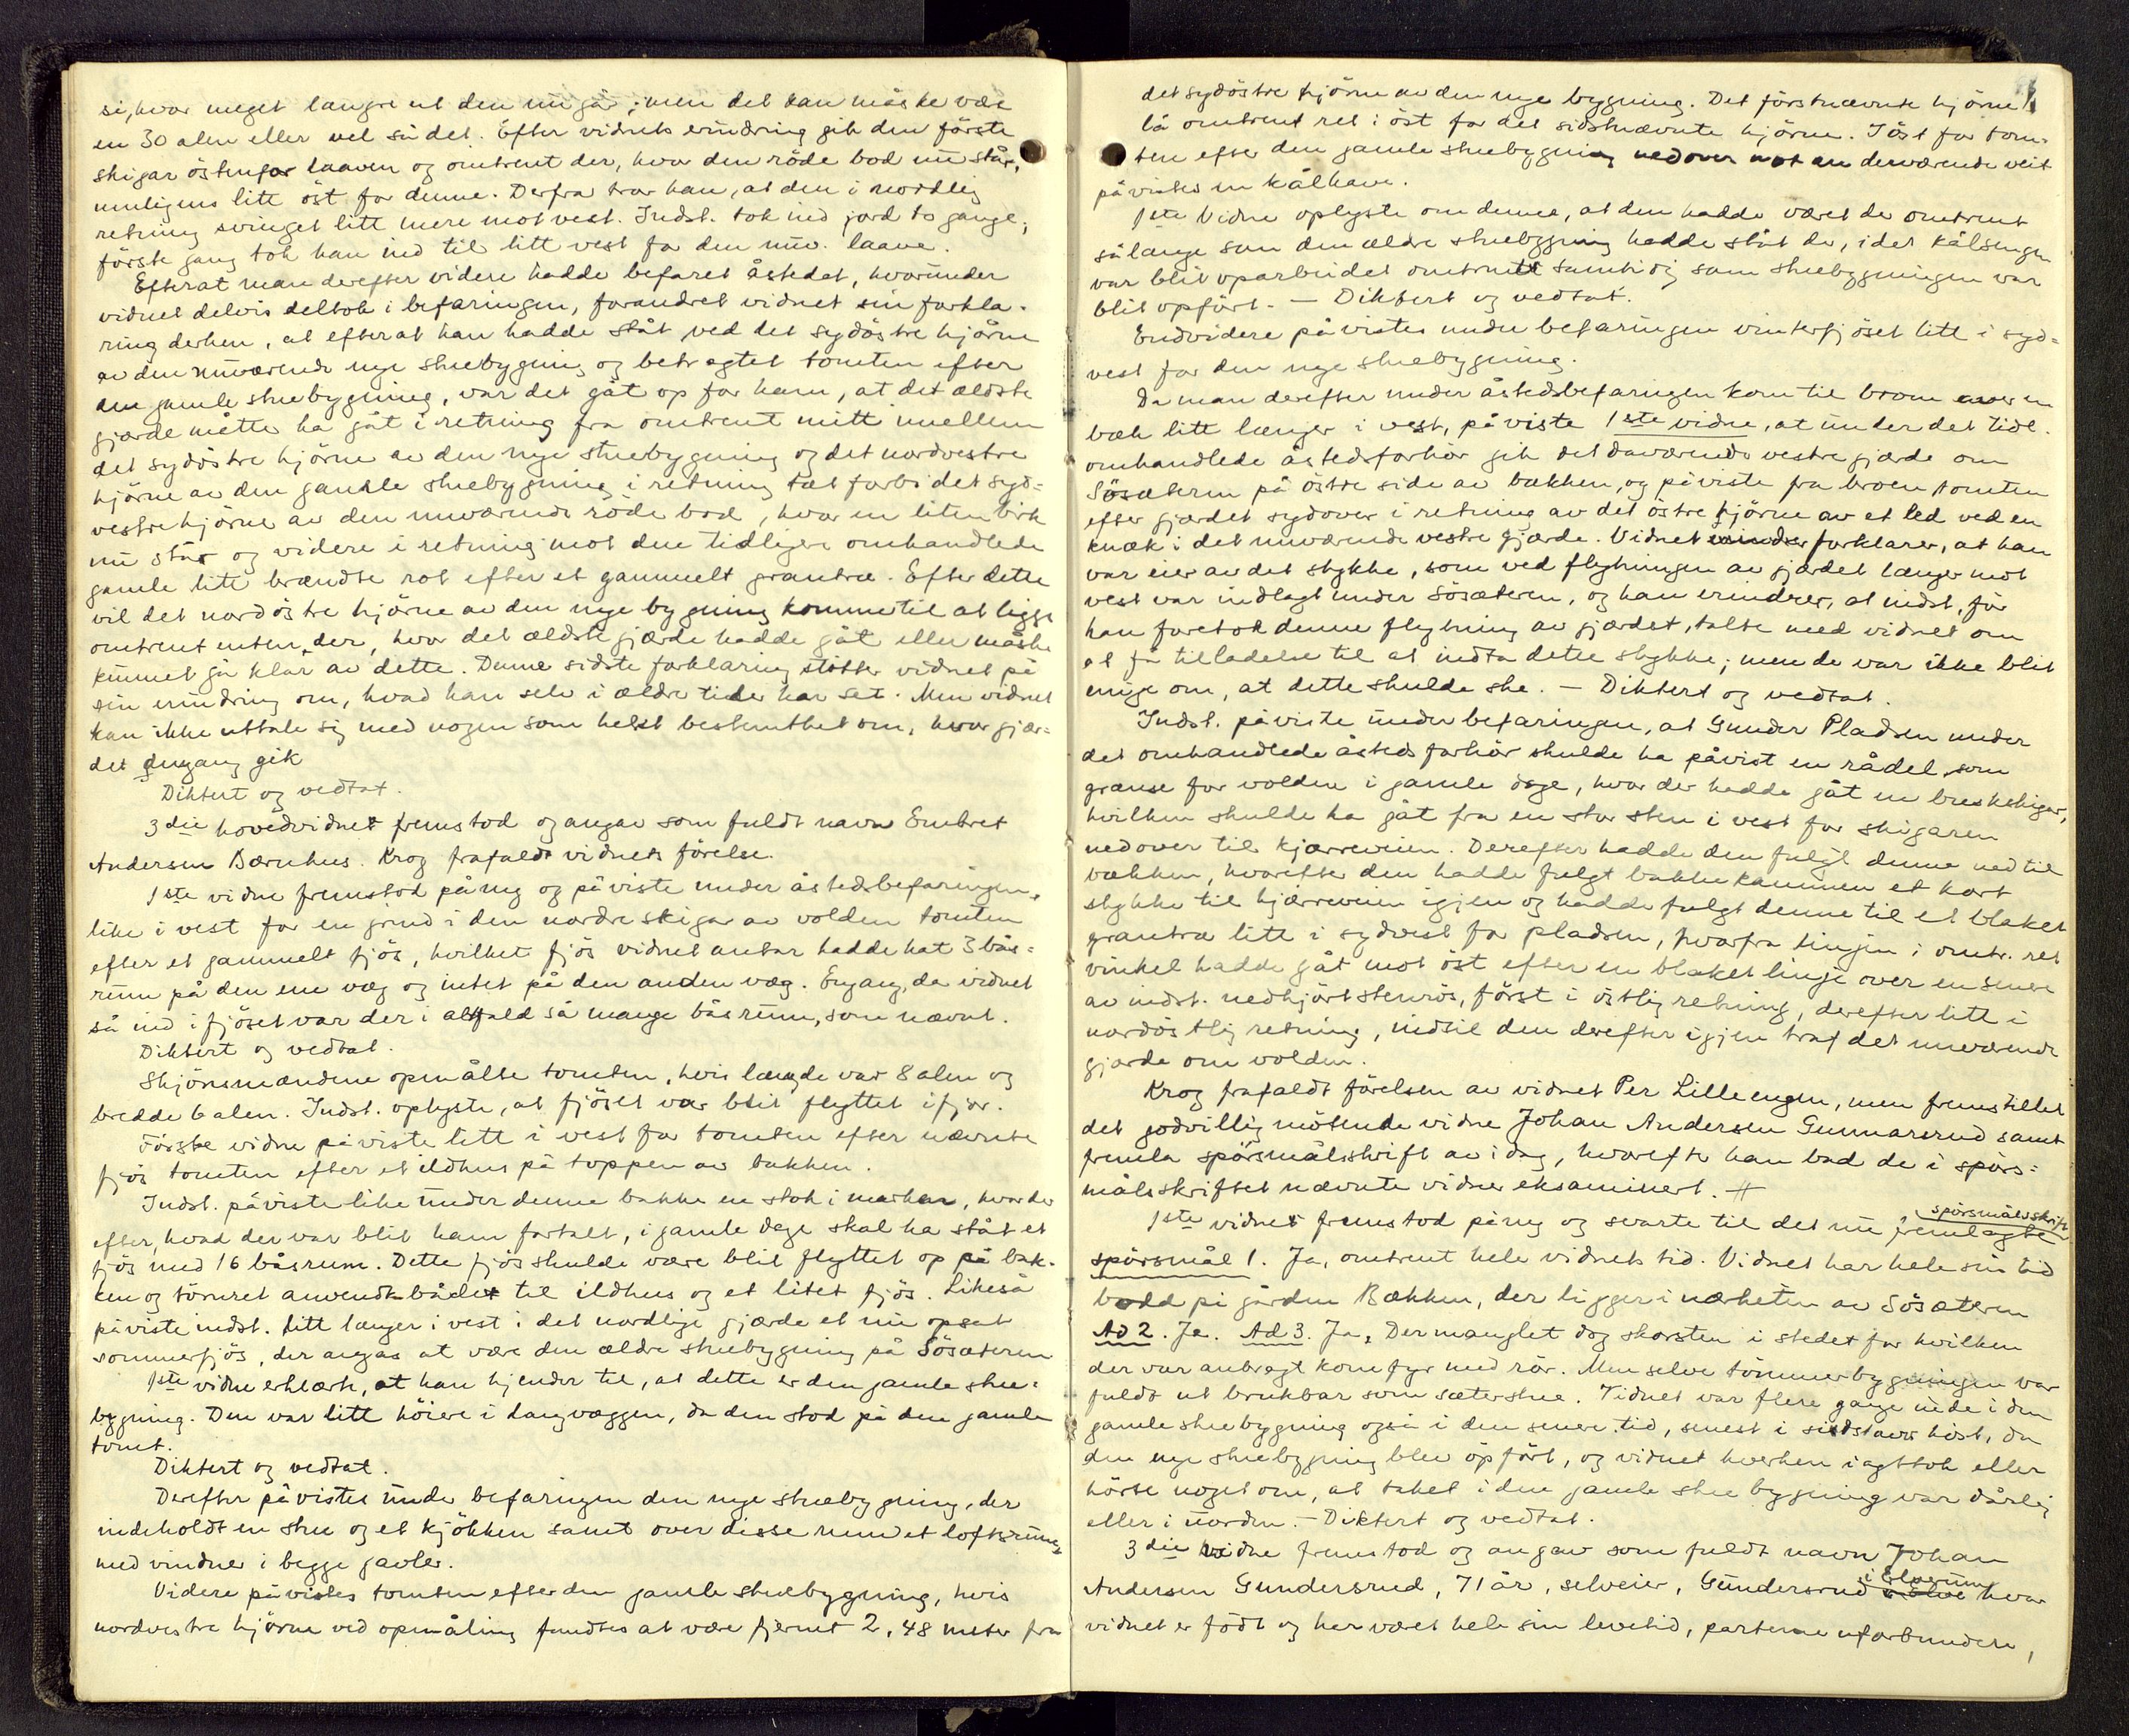 si, hvor meget længre ut den nu går; men det kan måske være
en 30 alen eller vel så det. Efter vidnets erindring gik den förste
skigar östenfor laaven og omtrent der, hvor den röde bod nu står,
muligens litt öst for denne. Derfra tror han, at den i nordlig
retning svinget litt mere mot vest. Indst. tok ind jord to gange;
förste gang tok han ind til litt vest for den nuv. laave.
Efterat man derefter videre hadde befaret åstedet, hvorunder
vidnet delvis deltok i befaringen, forandret vidnet sin forkla-
ring derhen, at efterat han hadde ståt ved det sydöstre hjörne
av den nuværende nye stuebygning og betragtet tomten efter
den gamle stuebygning, var det gåt op for ham, at det ældste
gjærde måtte ha gåt i retning fra omtrent mitt imellem
det sydöstre hjörne av den nye stuebygning og det nordvestre
hjörne av den gamle stuebygning i retning tæt forbi det syd-
vestre hjörne av den nuværende röde bod, hvor en liten birk
nu står og videre i retning mot den tidligere omhandlede
gamle litt brændte rot efter et gammelt grantræ. Efter dette
vil det nordöstre hjörne av den nye bygning komme til at ligge
omtrent enten der, hvor det ældste gjærde hadde gåt eller måske
kunnet gå klar av dette. Denne sidste forklaring stötter vidnet på
sin erindring om, hvad han selv i ældre tider har set. Men vidnet
kan ikke uttale sig med nogen som helst bestemthet om, hvor gjær-
det engang gik
Diktert og vedtat.
3die hovedvidnet fremstod og angav som fuldt navn Embret
Andersen Bærnhus. Krog frafaldt vidnets förelse.
1ste vidne fremstod påny og påviste under åstedsbefaringen,
like i vest for en grind i den nordre skigar av volden tomten
efter et gammelt fjös, hvilket fjös vidnet antar hadde hat 3 bås-
rum på den ene væg og intet på den anden væg. Engang, da vidnet
så ind i fjöset var der i alfald så mange båsrum, som nævnt.
Diktert og vedtat.
Skjönsmændene opmålte tomten, hvis længde var 8 alen og
bredde 6 alen. Indst. oplyste, at fjöset var blit flyttet ifjor.
Förste vidne påviste litt i vest for tomten efter nævnte
fjös tomten efter et ildhus på toppen av bakken.
Indst. påviste like under denne bakke en stok i marken, hvor der
efter, hvad der var blit ham fortalt, i gamle dage skal ha ståt et
fjös med 16 båsrum. Dette fjös skulde være blit flyttet op på bak-
ken og tömret anvendt både til ildhus og et litet fjös. Likeså
påviste indst. litt længer i vest i det nordlige gjærde et nu opsat
sommerfjös, der angaves at være den ældre stuebygning på Sösæteren
1ste vidne erklærte, at han kjender til, at dette er den gamle stue-
bygning. Den var litt höiere i langvæggen, da den stod på den gamle
tomt.
Diktert og vedtat.
Derefter påvistes under befaringen den nye stuebygning, der
indeholdt en stue og et kjökken samt over disse rum et loftsrum
med vinduer i begge gavler.
Videre påvistes tomten efter den gamle stuebygning, hvis
nordvestre hjörne ved opmåling fandtes at være fjernet 2,48 meter fra
det sydöstre hjörne av den nye bygning. Det förstnævnte hjörne
lå omtrent ret i öst for det sidstnævnte hjörne. I öst for tom-
ten efter den gamle stuebygning nedover mot en derværende veit
påvistes en kålhave.
1ste Vidne oplyste om denne, at den hadde været der omtrent
sålænge som den ældre stuebygning hadde ståt der, idet kålsengen
var blit oparbeidet omtrent samtidig som stuebygningen var
blit opfört. — Diktert og vedtat.
Endvidere påvistes under befaringen vinterfjöset litt i syd-
vest for den nye stuebygning.
Da man derefter under åstedsbefaringen kom til broen over en
bæk litt længer i vest, påviste 1ste vidne, at under det tidl.
omhandlede åstedsforhör gik det daværende vestre gjærde om
Sösæteren på östre side av bækken, og påviste fra broen tomten
efter gjærdet sydover i retning av det östre hjörne av et led ved en
knæk i det nuværende vestre gjærde. Vidnet forklarer, at han
var eier av det stykke, som ved flytningen av gjærdet længer mot
vest var indlagt under Sösæteren, og han erindrer, at indst, för
han foretok denne flytning av gjærdet, talte med vidnet om
at få tilladelse til at indta dette stykke; men de var ikke blit
enige om, at dette skulde ske. — Diktert og vedtat.
Indst. påviste under befaringen, at Gunder Pladsen under
det omhandlede åstedsforhör skulde ha påvist en rådel som
grænse for volden i gamle dage, hvor der hadde gåt en breskskigar,
hvilken skulde ha gåt fra en stor sten i vest for skigaren
nedover til kjærreveien. Derefter hadde den fulgt denne ned til
bækken, hvorefter den hadde fulgt bakkekammen et kort
stykke til kjærreveien igjen og hadde fulgt denne til et bleket
grantræ litt i sydvest for pladsen, hvorfra linjen i omtr. ret
vinkel hadde gåt mot öst efter en bleket linje over en senere
av indst. nedkjört stenrös, först i östlig retning, derefter litt i
nordöstlig retning, indtil den derefter igjen traf det nuværende
gjærde om volden.
Krog frafaldt förelsen av vidnet Per Lilleengen, men fremstillet
det godvillig mötende vidne Johan Andersen Gunnarsrud samt
fremla spörsmålsskrift av idag, hvorefter han bad de i spörs-
målsskriftet nævnte vidner eksaminert. #
1ste vidnet fremstod påny og svarte til det nu fremlagte spörsmålsskrift
spörsmål 1. Ja, omtrent hele vidnets tid. Vidnet har hele sin tid
bodd på gården Bækken, der ligger i nærheten av Sösæteren
Ad 2. Ja. Ad 3. Ja, Der manglet dog skorsten i stedet for hvilken
der var anbragt komfyr med rör. Men selve tömmerbygningen var
fuldt ut brukbar som sæterstue. Vidnet var flere gange inde i den
gamle stuebygning også i den senere tid, senest i sidstavv höst, da
den nye stuebygning blev opfört, og vidnet hverken iagttok eller
hörte noget om, at taket i den gamle stuebygning var dårlig
eller i uorden. — Diktert og vedtat.
3die vidne fremstod og angav som fuldt navn Johan
Andersen Gundersrud, 71 år, selveier, Gundersrud i Elverum hvor
vidnet er födt og har været hele sin levetid, parterne uforbunden,